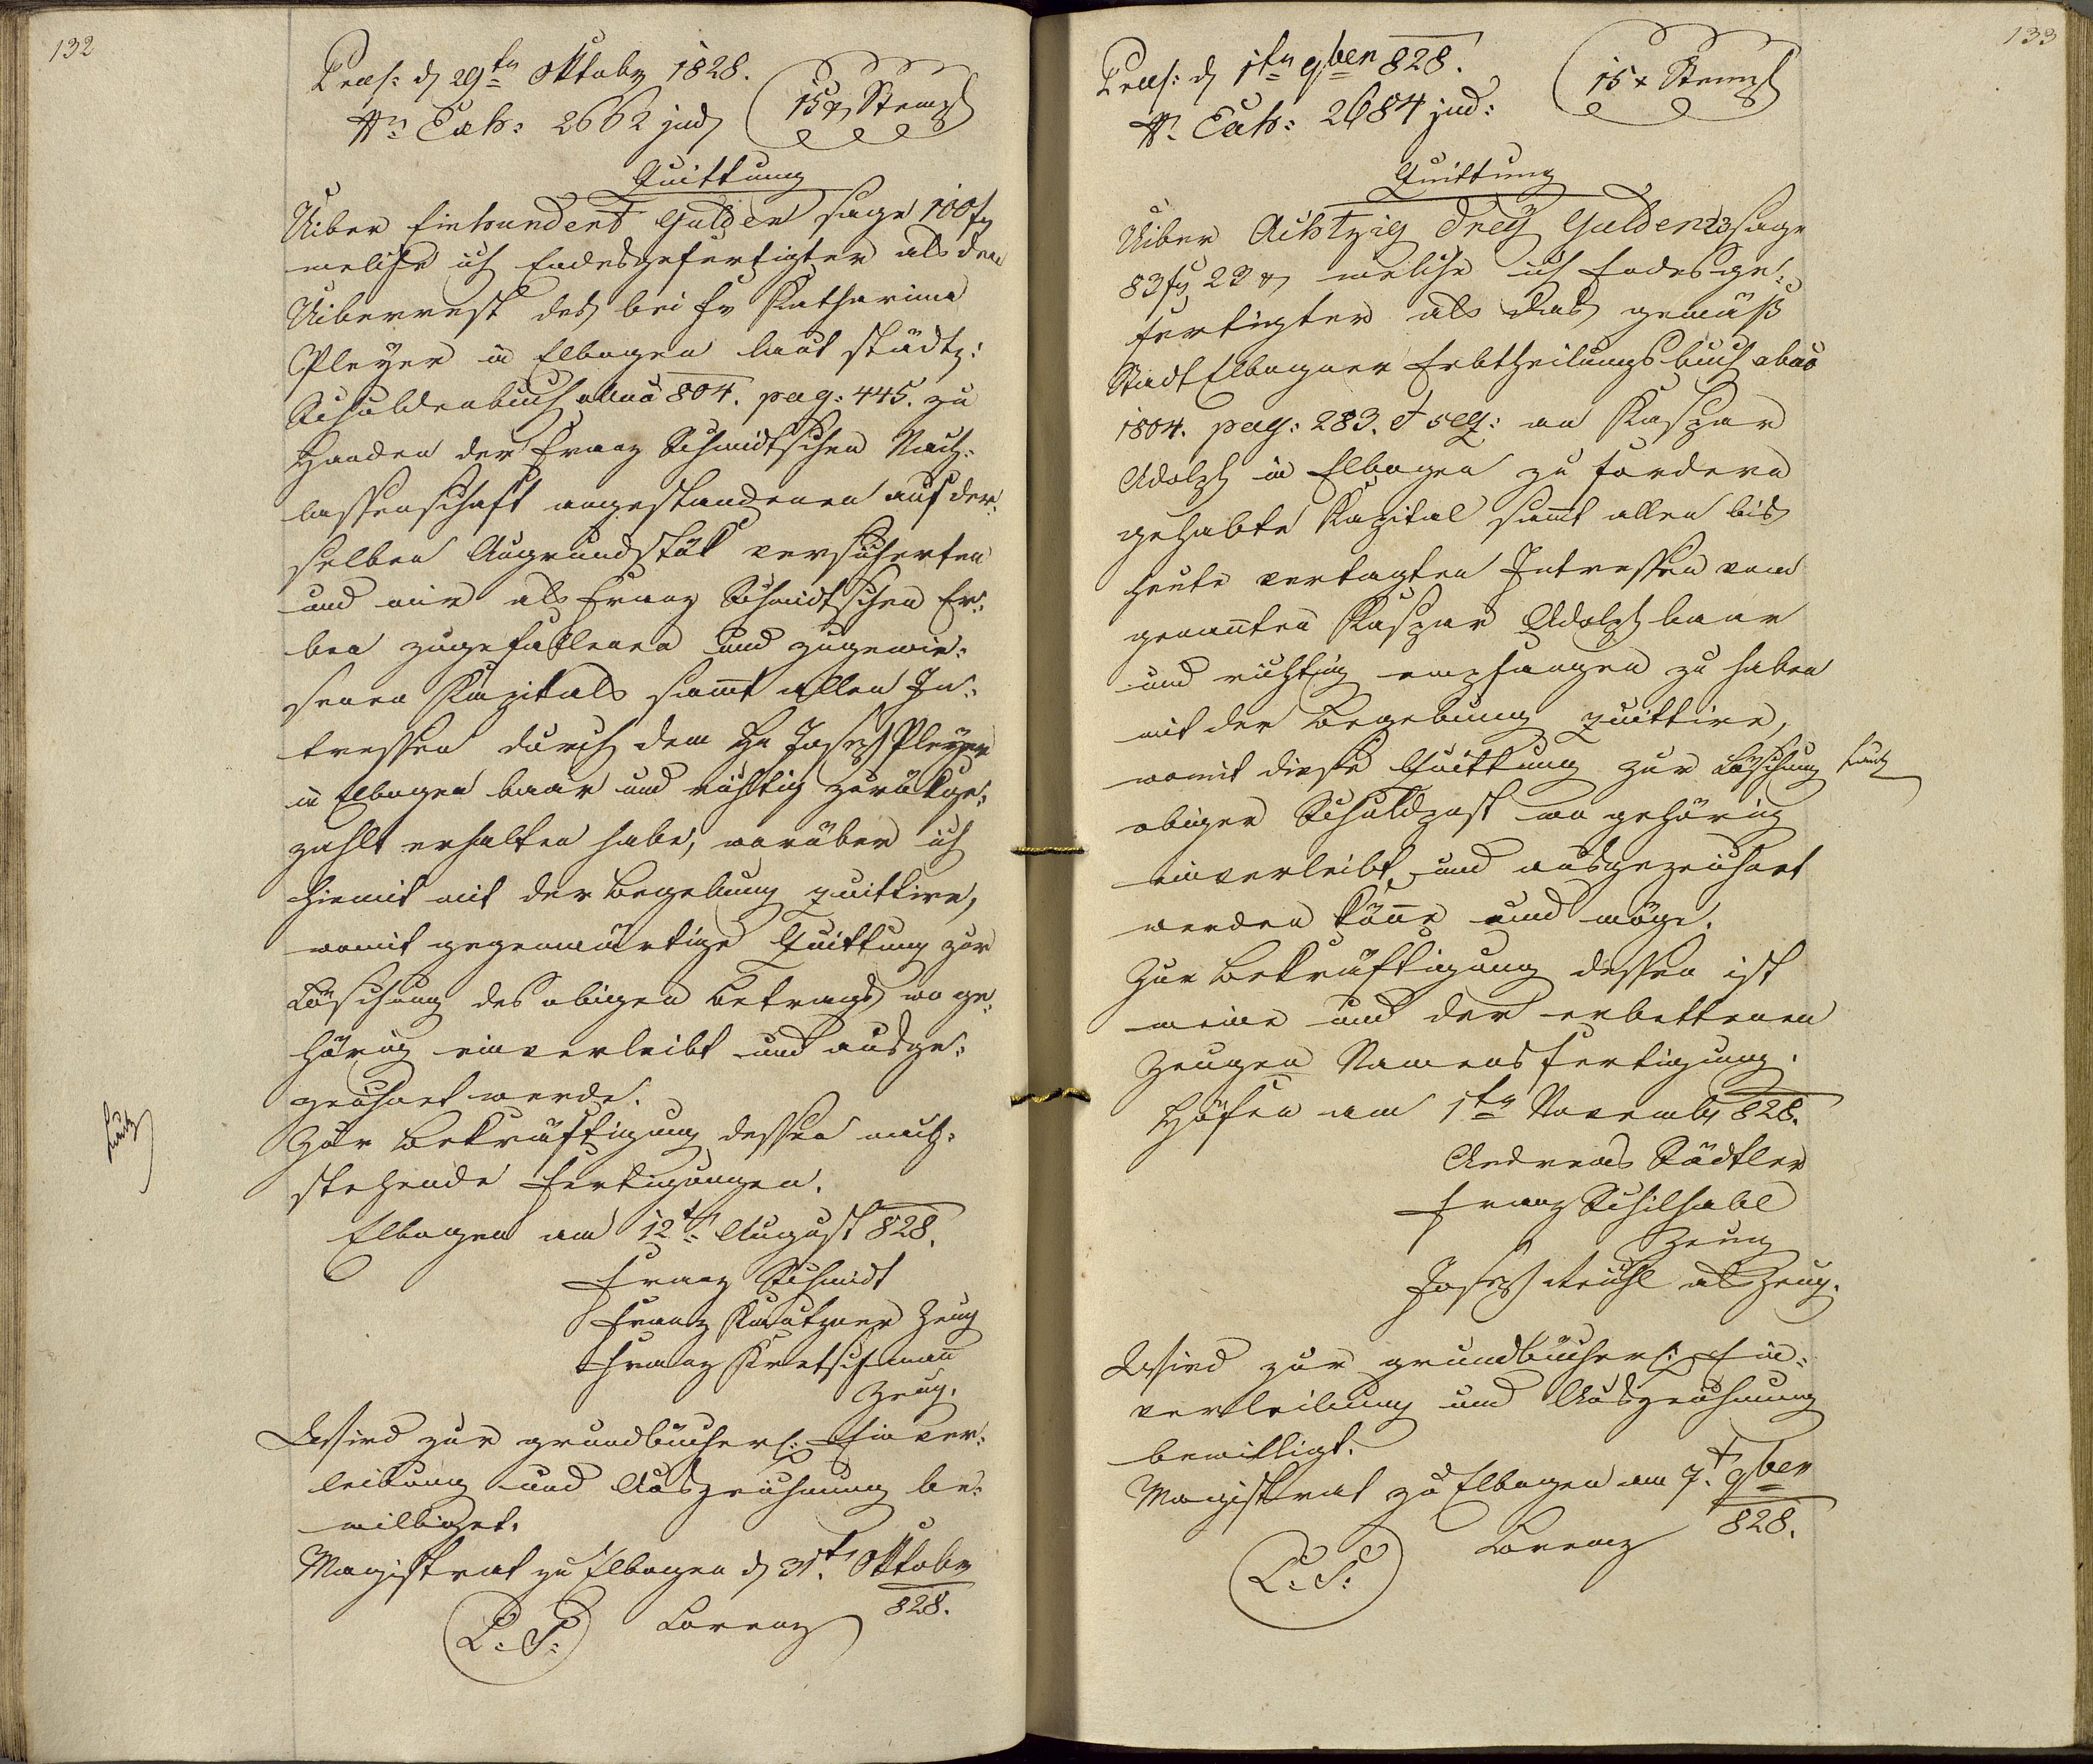 132
Præs: d 29ten Oktober 1828.
Nr. Exh: 2662 jud
15 x Stempl
Quittung
Uiber Einhundert Gulden sage 100 f
welche ich Endesgefertigter als den
Uiberrest des bei Fr Katharina
Pleyer in Elbogen laut städtz:
Schuldenbuch anno 804. pag: 445. zu
Handen der Franz Schmidtschen Nach-
lassenschaft angestandenen auf der-
selben Augrundstük versicherten
und mir als Franz Schmidtschen Er-
ben zugefallenen und zugewie-
senen Kapitals sammt allen In-
tressen durch dem Hr Joseph Pleyer
in Elbogen baar und richtig zurükge-
zahlt erhalten habe, worüber ich
hiemit mit der Begebung quittire,
womit gegenwärtige Quittung zur
Löschung des obigen Betrags wo ge-
hörig einverleibt und ausge-
zeichnet werde.
Zur Bekräftigung dessen nach-
stehende Fertigungen.
Elbogen am 12t August 828.
Franz Schmidt
Franz Kautzner Zeug
Franz Kretschmann
Zeug.
Wird zur grundbücherl: Einver-
leibung und Auszeichnung be-
williget.
Magistrat zu Elbogen d 31t Oktober
828.
L: S: Lorenz
133
Præs: d 1ten 9ben 828.
Nr. Exh: 2684 jud:
15 x Stempl
Quittung
Uiber Achtzig Drey Gulden 23 sage
83 f 23 x welche ich Endesge-
fertigter als das gemäß
Stadt Elbogner Erbtheilungsbuch anno
1804. pag: 283. et seq: an Kaspar
Adolph in Elbogen zu fordern
gehabte Kapital sammt allen bis
heute vertagten Intressen vom
genannten Kaspar Adolph baar
und richtig empfangen zu haben
mit der Begebung quittire,
womit diese Quittung zur Löschung
obiger Schuldpost wo gehörig
einverleibt und ausgezeichnet
werden könne und möge.
Zur Bekräftigung dessen ist
meine und der erbettenen
Zeugen Namensfertigung.
Höfen am 1ten November 828.
Andreas Städtler
Franz Schilhabl
Zeug
Joseph Reichl als Zeug.
Wird zur grundbücherl: Ein-
verleibung und Auszeichnung
bewilligt.
Magistrat zu Elbogen am 7t 9ben
828.
L: S: Lorenz